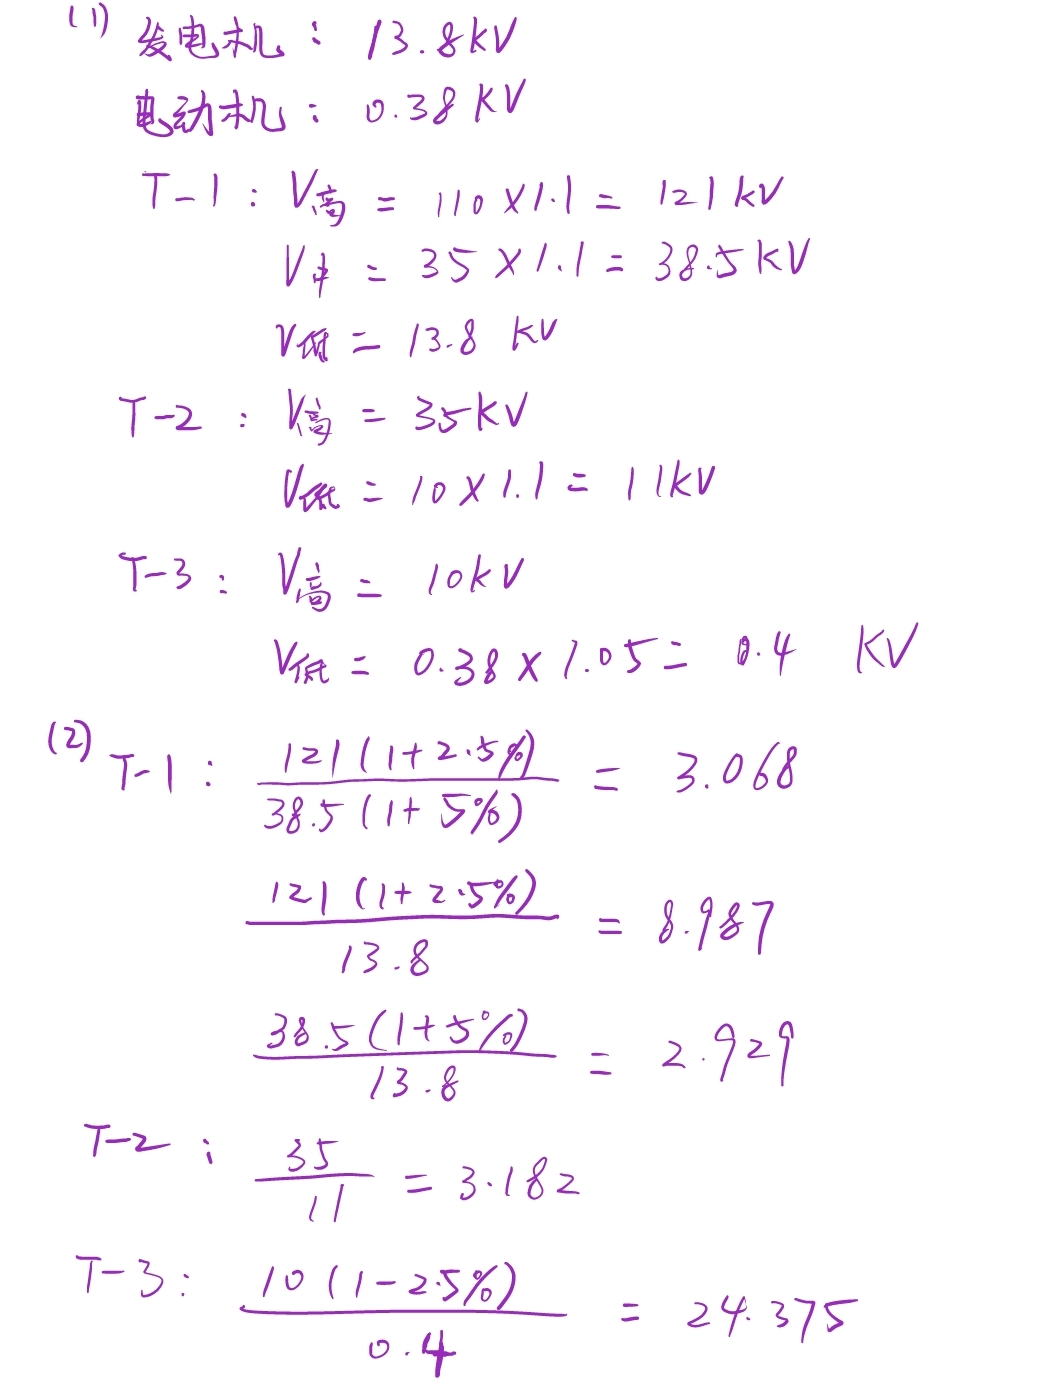 (1) 发电机: 13.8kV
电动机: 0.38KV
T-1: V高 = 110×1.1 = 121kV
V中 = 35×1.1 = 38.5KV
V低 = 13.8 KV
T-2: V高 = 35KV
V低 = 10×1.1 = 11kV
T-3: V高 = 10kV
V低 = 0.38×1.05 = 0.4 KV
(2) T-1: 121(1+2.5%) / 38.5(1+5%) = 3.068
121(1+2.5%) / 13.8 = 8.987
38.5(1+5%) / 13.8 = 2.929
T-2: 35 / 11 = 3.182
T-3: 10(1-2.5%) / 0.4 = 24.375